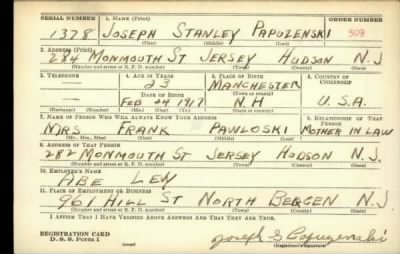 SERIAL NUMBER 1. NAME (Print) ORDER NUMBER
1378 JOSEPH STANLEY PAPUZENSKI 509
(First) (Middle) (Last)
2. ADDRESS (Print)
284 MONMOUTH ST JERSEY HUDSON N.J
(Number and street or R. F. D. number) (Town) (County) (State)
3. TELEPHONE 4. AGE IN YEARS 5. PLACE OF BIRTH 6. COUNTRY OF CITIZENSHIP
— 23 MANCHESTER
DATE OF BIRTH (Town or county)
— FEB 24 1917 N.H U.S.A.
(Exchange) (Number) (Mo.) (Day) (Yr.) (State or country)
7. NAME OF PERSON WHO WILL ALWAYS KNOW YOUR ADDRESS 8. RELATIONSHIP OF THAT PERSON
MRS. FRANK PAWLOSKI MOTHER IN LAW
(Mr., Mrs., Miss) (First) (Middle) (Last)
9. ADDRESS OF THAT PERSON
282 MONMOUTH ST JERSEY HUDSON N.J.
(Number and street or R. F. D. number) (Town) (County) (State)
10. EMPLOYER'S NAME
ABE LEVY
11. PLACE OF EMPLOYMENT OR BUSINESS
961 HILL ST NORTH BERGEN N.J
(Number and street or R. F. D. number) (Town) (County) (State)
I AFFIRM THAT I HAVE VERIFIED ABOVE ANSWERS AND THAT THEY ARE TRUE.
REGISTRATION CARD
D. S. S. Form 1 (over) Joseph S Papuzenski
(Registrant's signature)